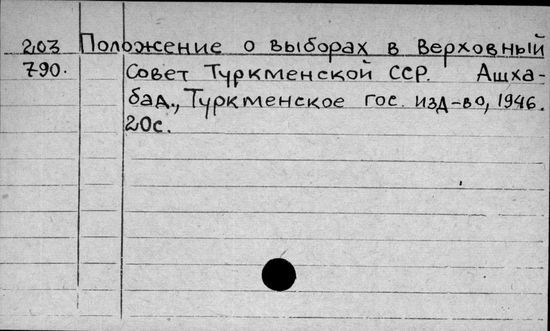 203 Положение о выборах в Верховный
790. Совет Туркменской ССР. Ашха-
бад., Туркменское гос. изд-во, 1946.
20с.